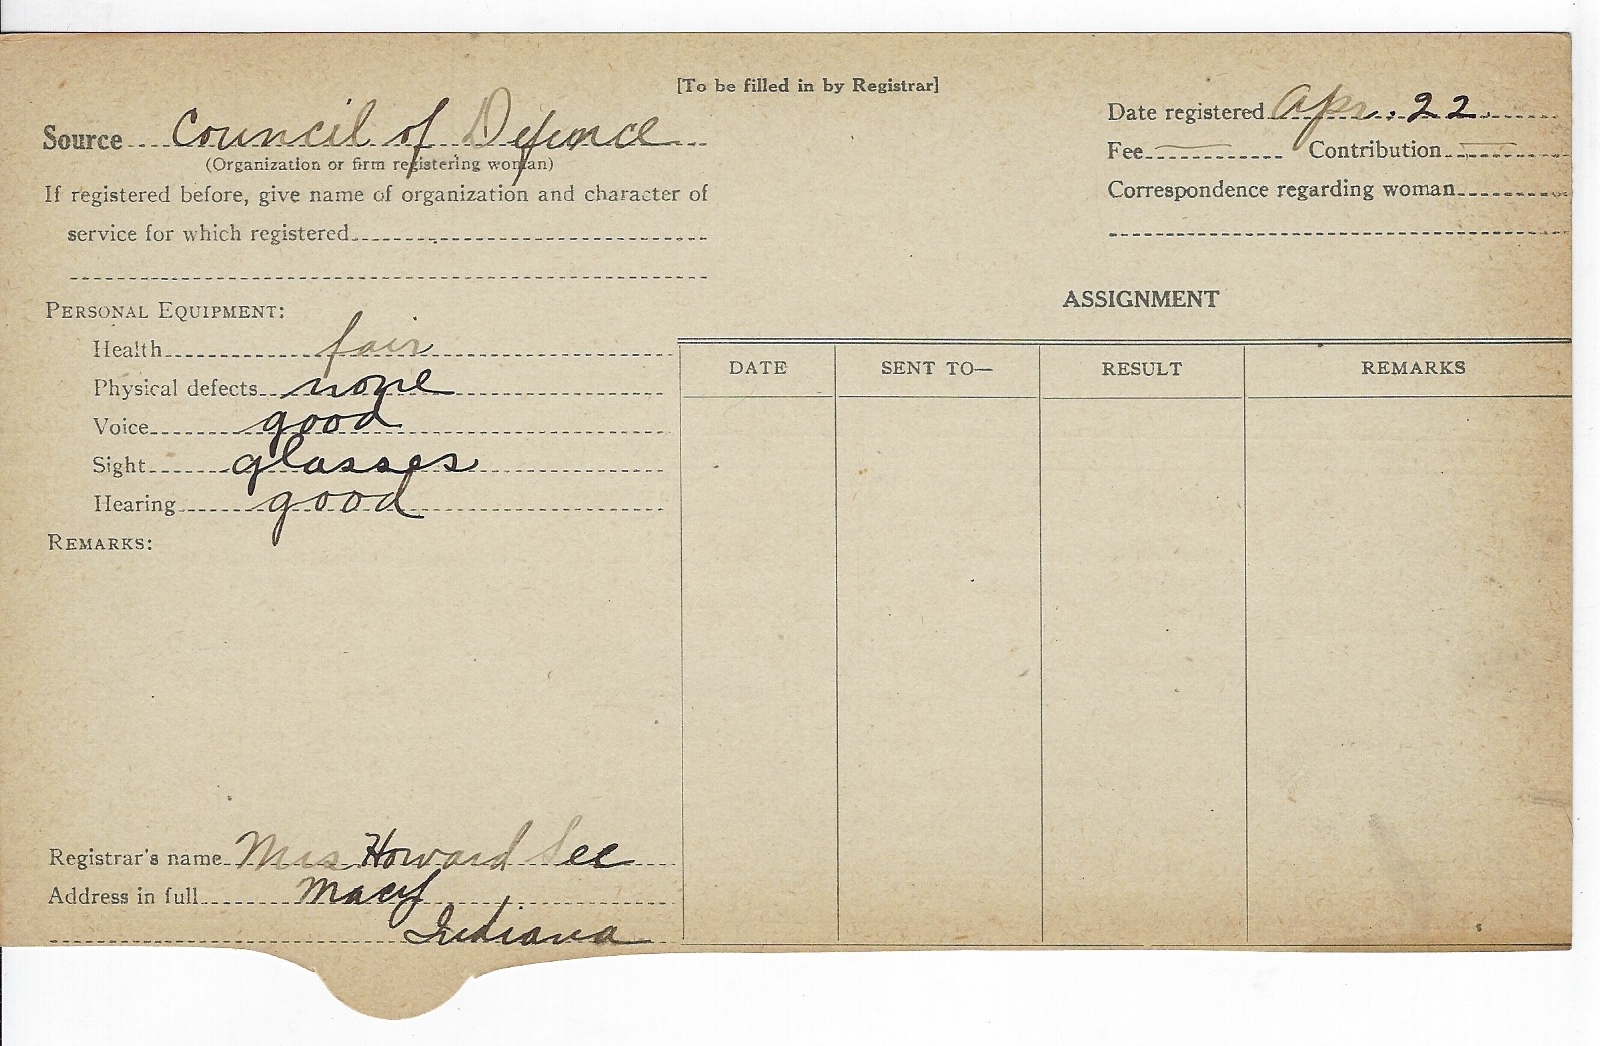 [To be filled in by Registrar]
Source Council of Defence
(Organization or firm registering woman)
If registered before, give name of organization and character of
service for which registered
Date registered Apr. 22
Fee Contribution
Correspondence regarding woman
PERSONAL EQUIPMENT:
Health fair
Physical defects none
Voice good
Sight glasses
Hearing good
REMARKS:
ASSIGNMENT
DATE SENT TO— RESULT REMARKS
Registrar's name Mrs Howard See
Address in full Macy
Indiana